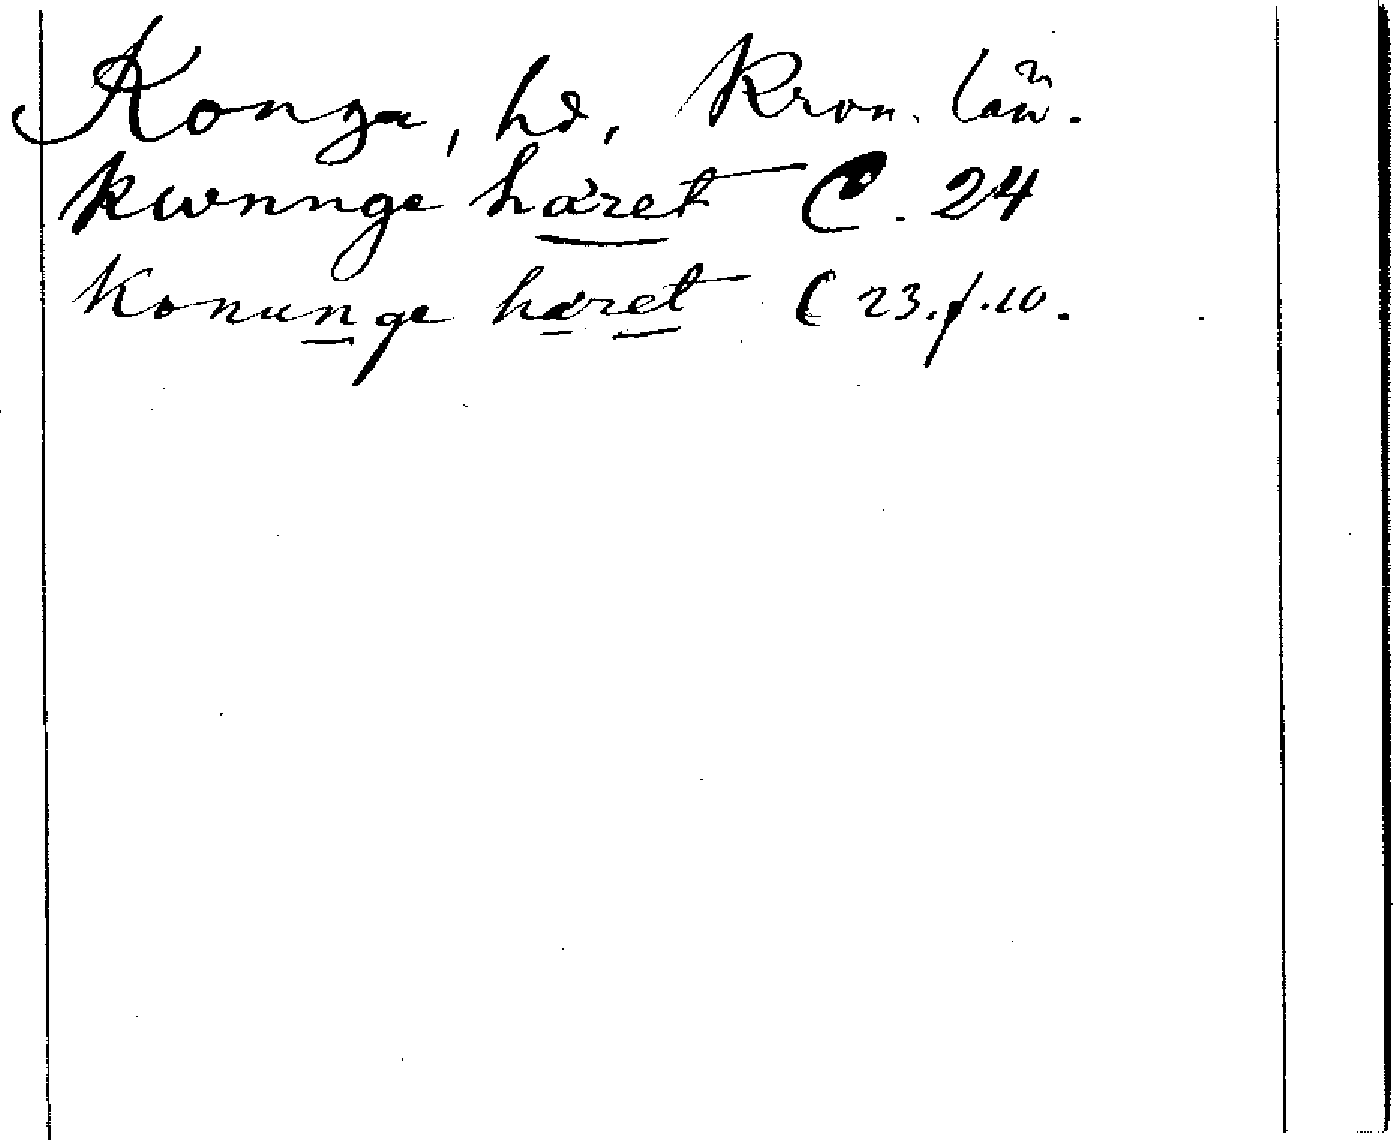 Konga, hd, Kron. län.
kwnnge häret C. 24
Konunge häret C 23. f. 10.